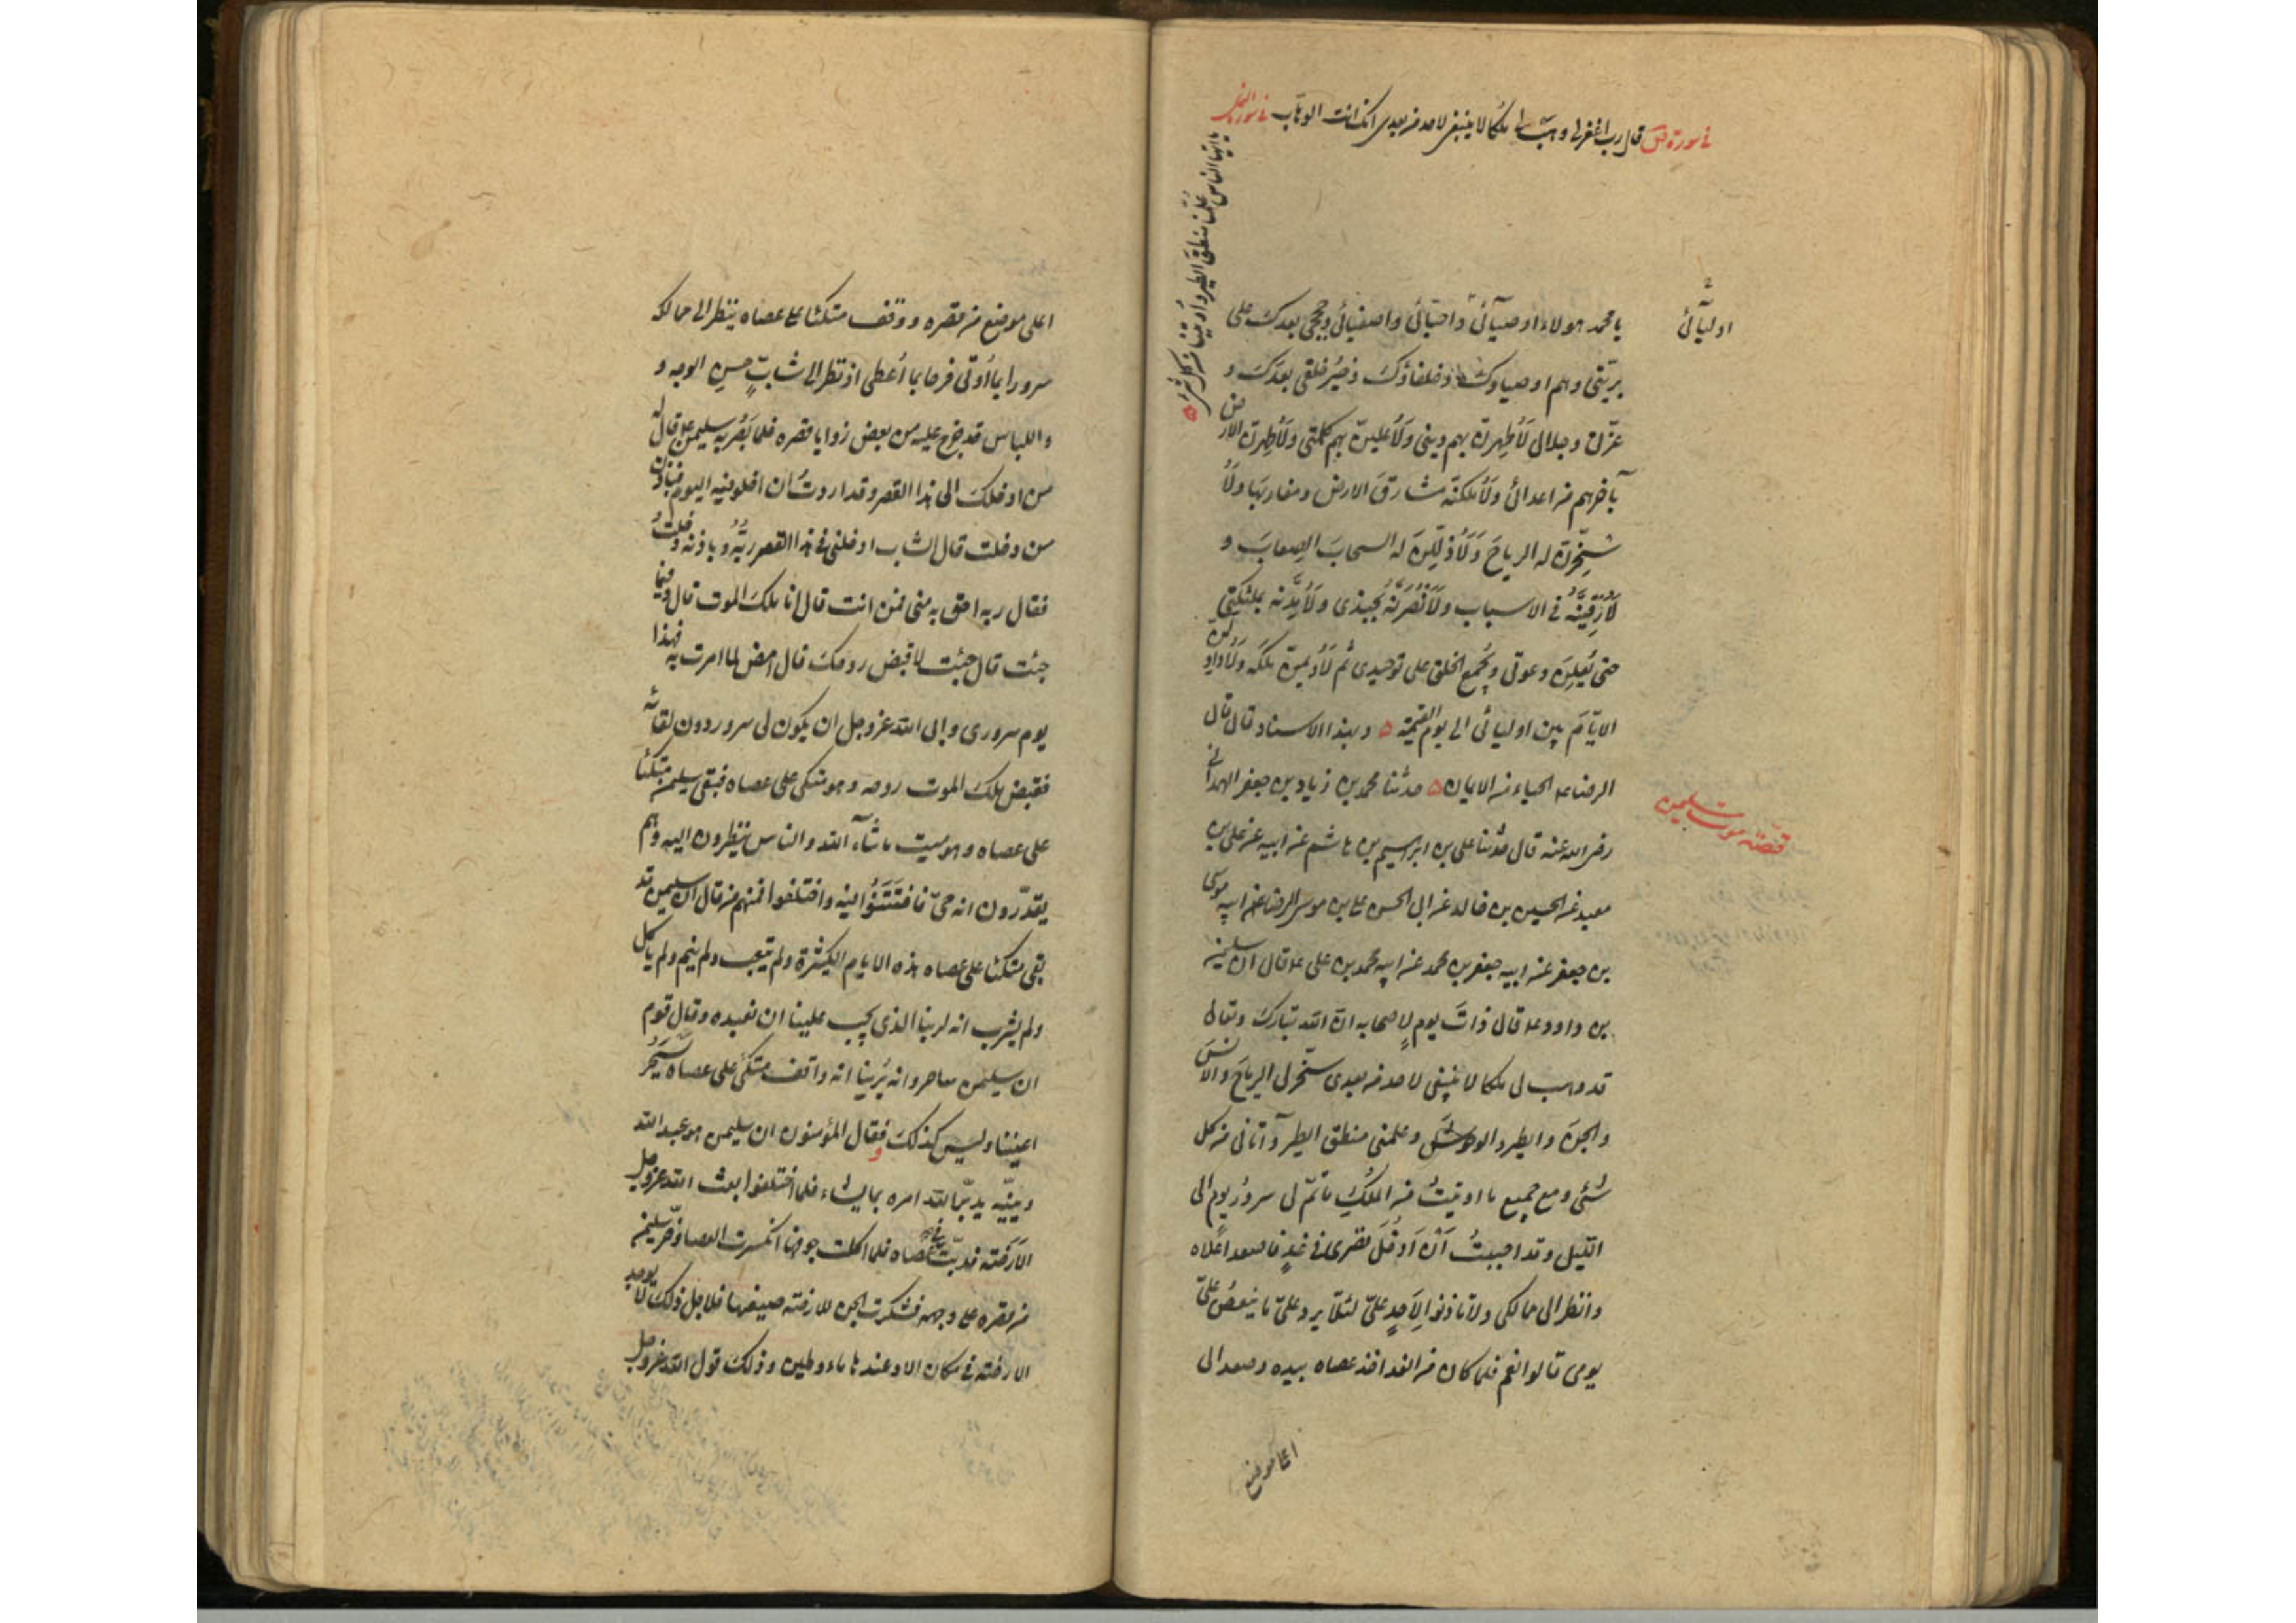 في سورة ص قال رب اغفر لي وهب لي ملكا لا ينبغي لاحد من بعدي انك انت الوهاب في سورة النمل
يا ايها الناس عُلّمنا منطق الطير واُوتينا من كل شئ
اوليآئي
يا محمد هولاء اوصيآئي واحبّآئي واصفيائي وحججي بعدك على
بريّتي وهم اوصياوك وخلفاؤك وخيرُ خلقي بعدك و
عزّتي وجلالي لَأُظهرنّ بهم ديني ولَأُعلينّ بهم كلمتي ولَأُطهرنّ الارض
بآخرهم من اعدائي ولَأُملكنّه مشارقَ الارض ومغاربَها ولَأُ
سَخِّرنّ له الرياحَ وَلَأُذلِّلنّ له السحابَ الصِعابَ و
لَأُرَقِّيَنَّهُ في الاسباب ولَأَنْصُرَنَّهُ بجُندي ولَأُمِدَّنّه بملئكتي
حتى يُعلِنَ دعوتي ويَجمع الخلق على توحيدي ثم لَأُديمنّ ملكَه ولَأُداوِلنّ
الايّامَ بين اوليائي الى يوم القيمة ٥ وبهذا الاسناد قال قال
الرضا ع الحياء من الايمان ٥ حدثنا محمد بن زياد بن جعفر الهمداني
رضي الله عنه قال حدثنا علي بن ابراهيم بن هاشم عن ابيه عن علي بن
معبد عن الحسين بن خالد عن ابي الحسن علي بن موسى الرضا عن ابيه موسى
بن جعفر عن ابيه جعفر بن محمد عن ابيه محمد بن علي ع قال ان سليمن
قصّة موت سليمن
بن داود ع قال ذاتَ يوم لاصحابه انّ الله تبارك وتعالى
قد وهب لي ملكا لا ينبغي لاحد من بعدي سخّر لي الريحَ والانسَ
والجنّ والطير والوحوش وعلمني منطق الطير وآتاني من كل
شئي ومع جميع ما اوتيتُ من الملكِ ما تمّ لي سرورُ يوم الى
الليل وقد احببتُ اَنْ اَدخُلَ قصري في غدٍ فاصعد اعلاه
وانظر الى ممالكي ولا تاذنوا لِاَحدٍ عليّ لئلّا يرد عليّ ما ينغص عليّ
يومي قالوا نعم فلما كان من الغد اخذ عصاه بيده وصعد الى
اعلى موضع
اعلى موضع من قصره ووقف متكئا على عصاه ينظر الى ممالكه
سرورا بما اُوتي فرحا بما اُعطي اذ نظر الى شابٍّ حسنِ الوجه و
واللباس قد خرج عليه من بعض زوايا قصره فلما بَصُر به سليمن ع قال له
من ادخلك الى هذا القصر وقد اردتُ ان اخلو فيه اليوم فباذن
من دخلت قال الشاب ادخلني في هذا القصر ربُّهُ وباذنه دخلتُ
فقال ربه احق به مني فمن انت قال انا ملك الموت قال وفيما
جئت قال جئت لاقبض روحك قال امض لما امرت به فهذا
يوم سروري وابى الله عز وجل ان يكون لي سرور دون لقائه
فقبض ملك الموت روحه وهو متكي على عصاه فبقي سليمن متكئا
على عصاه وهو ميت ما شآء الله والناس ينظرون اليه وهم
يقدّرون انه حيّ فافتَتَنُوا فيه واختلفوا فمنهم من قال ان سليمن قد
بقي متكئا على عصاه هذه الايام الكثيرة ولم يتعب ولم ينم ولم ياكل
ولم يشرب انه لربنا الذي يجب علينا ان نعبده وقال قوم
ان سليمن ساحر وانه يُرينا انه واقف متكئ على عصاه يَسحَر
اعيننا وليس كذلك فقال المؤمنون ان سليمن هو عبد الله
ونبيّه يدبّر الله امره بما يشاء فلما اختلفوا بعث الله عز وجل
الاَرَضَة فدبّت في عصاه فلما اكلت جوفها انكسرت العصا وخرّ سليمن
من قصره على وجهه فشكرت الجن للارضة صنيعها فلاجل ذلك لا يوجد
الارضة في مكان الا وعندها ماء وطين وذلك قول الله عز وجل